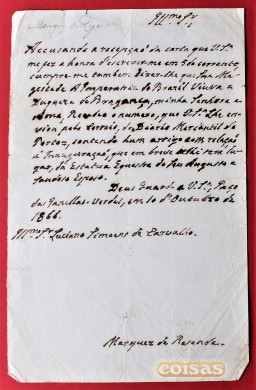 Illmo Sr
Accusando a recepção da carta que V. Sa
me fez a honra d'escrever-me em 5 do corrente,
cumpre-me tambem dizer-lhe que Sua Ma-
gestade A Imperatriz do Brazil Viuva e
Duqueza de Bragança, minha Senhora e
Ama, Recebeo o numero, que V. Sa Lhe en-
viou pelo correio, do Diario Mercantil do
Porto, contendo hum artigo com relação
á Inauguração, que em breve alli terá lu-
gar, da Estatua Equestre do Seu Augusto e
Saudoso Esposo.
Deus Guarde a V. Sa, Paço
das Janellas-Verdes, em 10 d'Outubro de
1866.
Illmo Sr Luciano Simoens de Carvalho.
Marquez de Rezende.
coisas